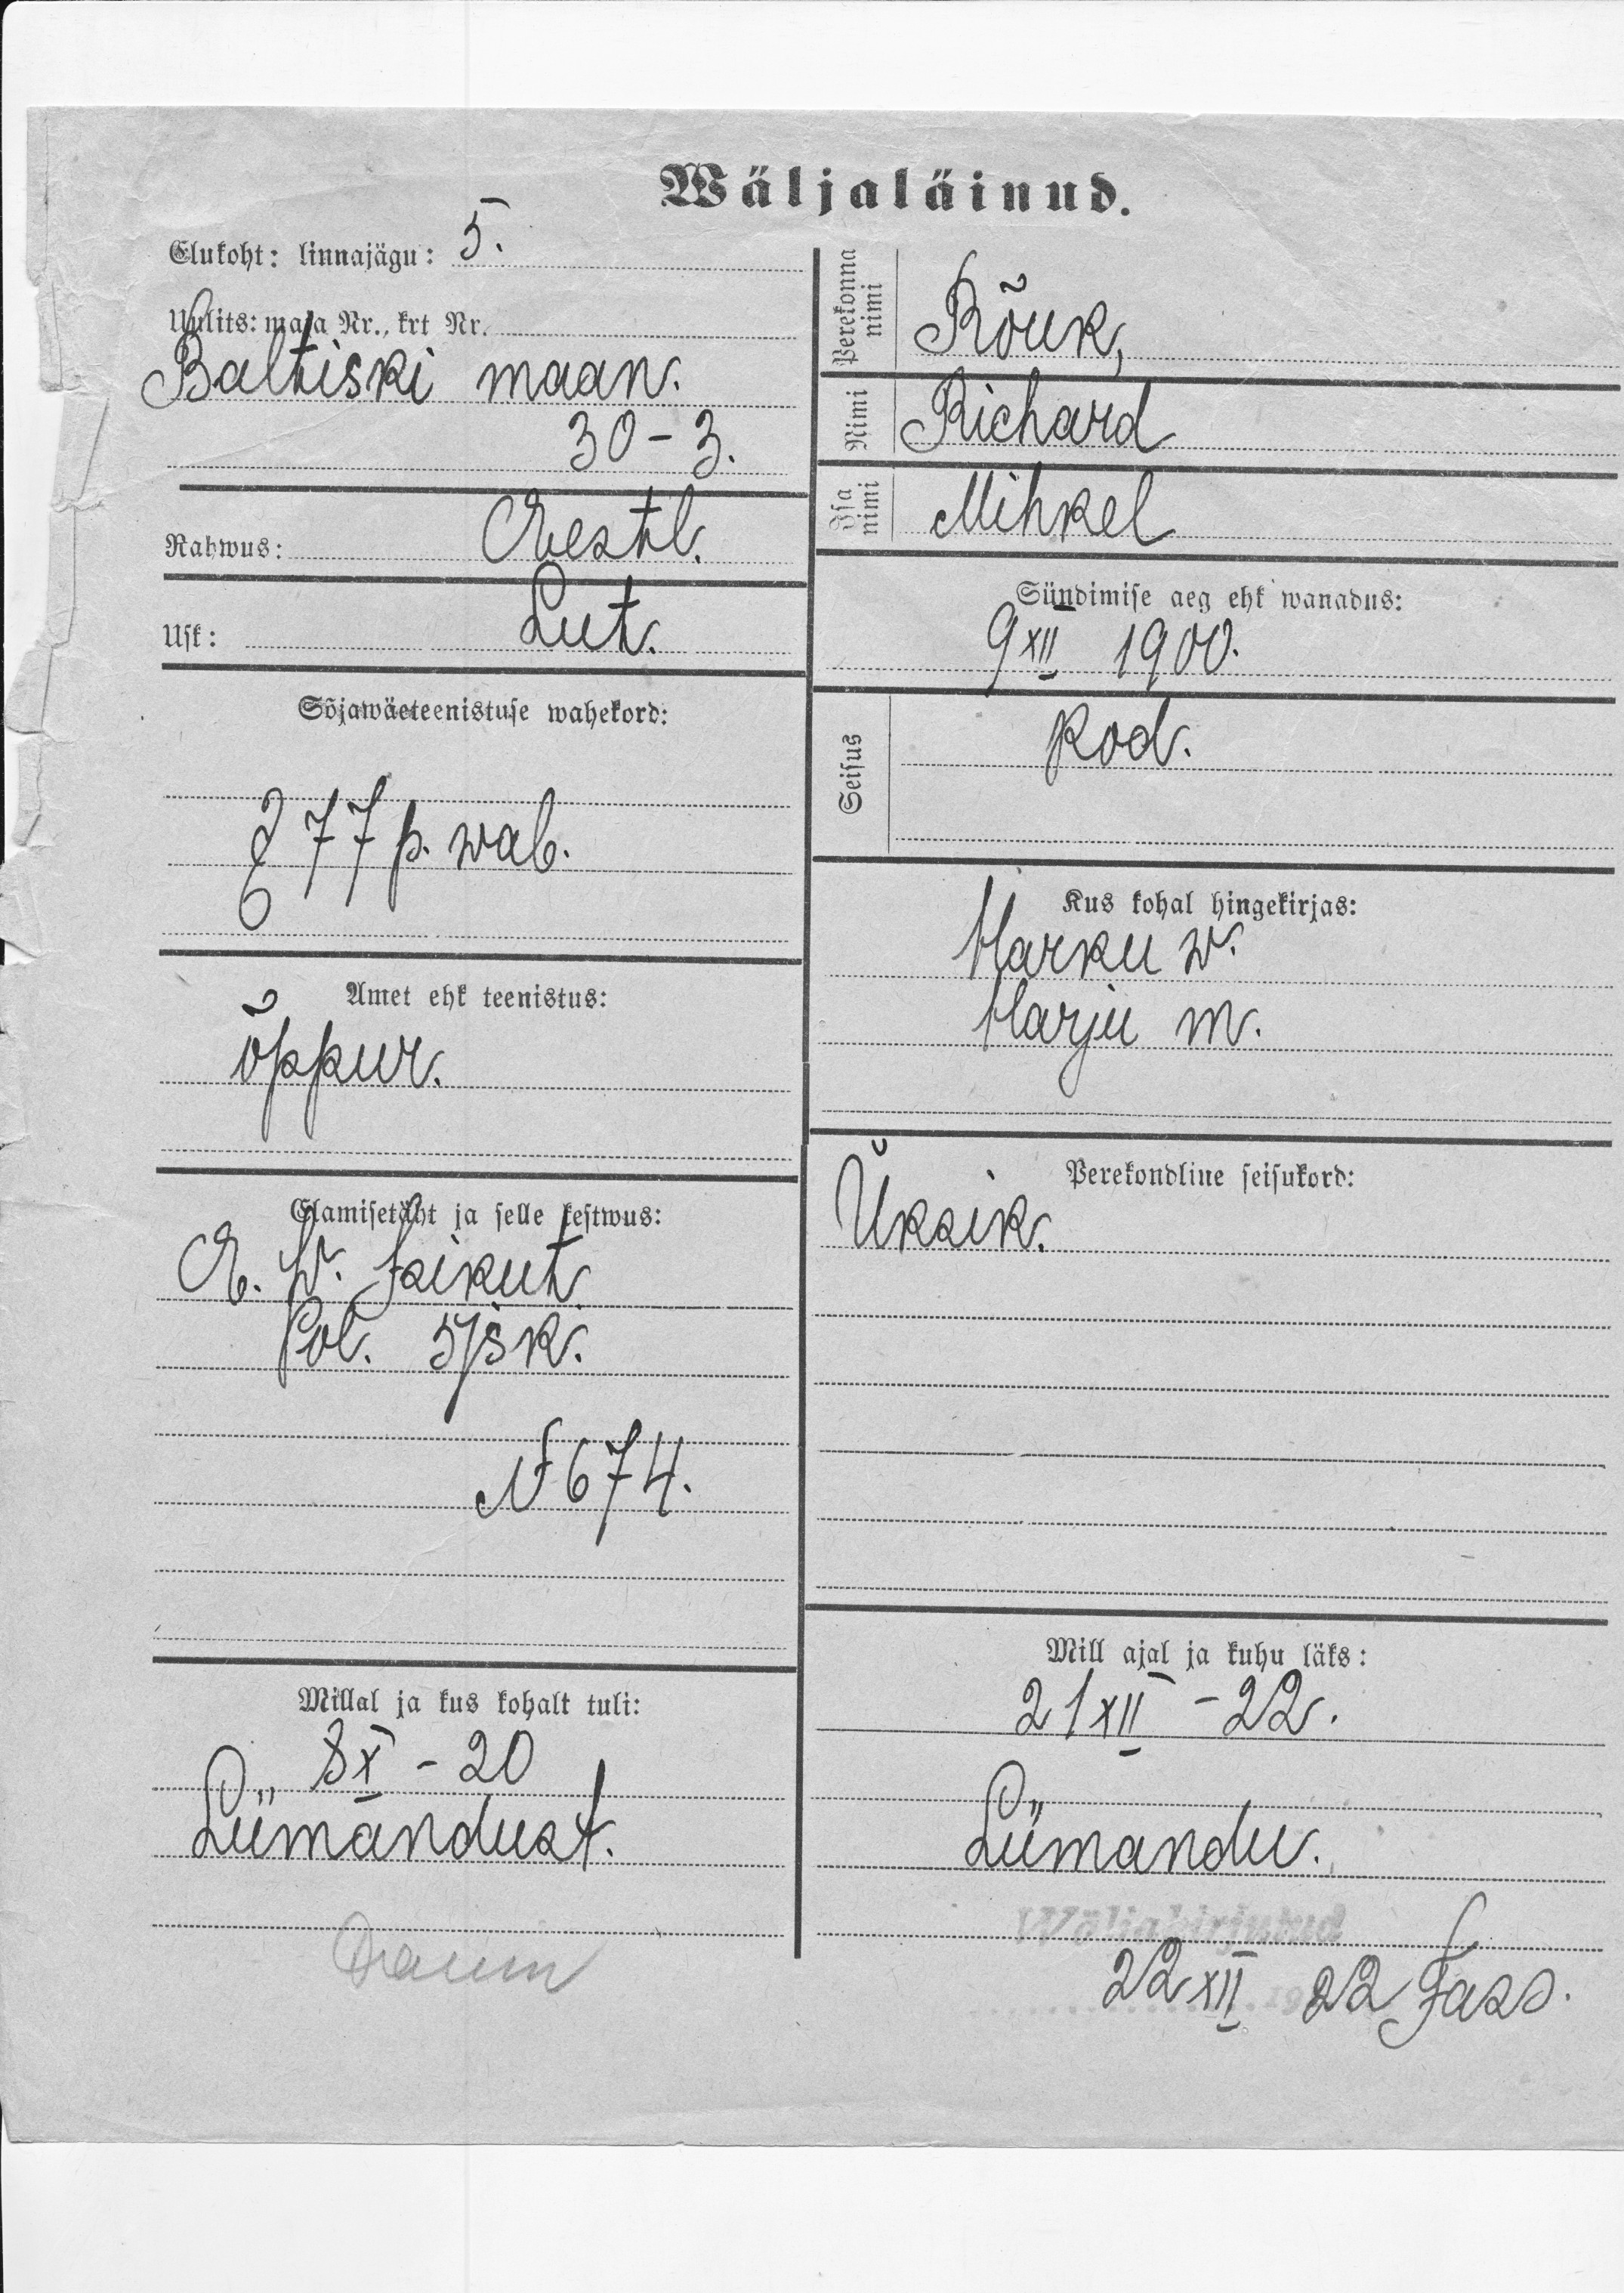 Wäljaläinud.
Elukoht: linnajägu: 5.
Uulits: maja Nr., krt Nr.
Baltiski maan.
30-3.
Rahwus: Eestl.
Usk: Lut.
Sõjawäeteenistuse wahekord:
§ 77 p. wab.
Amet ehk teenistus:
õppur.
Elamisetäht ja selle kestwus:
E. W. Isikut.
Pol. 5 jsk.
N 674.
Millal ja kus kohalt tuli:
8 X - 20
Lümandust.
Perekonna nimi Rõuk,
Nimi Richard
Isa nimi Mihkel
Sündimise aeg ehk wanadus:
9 XII 1900.
Seisus kod.
Kus kohal hingekirjas:
Harku w.
Harju m.
Perekondline seisukord:
Üksik.
Mill ajal ja kuhu läks:
21 XII - 22.
Lümandu.
Wäljakirjutud
22 XII 22